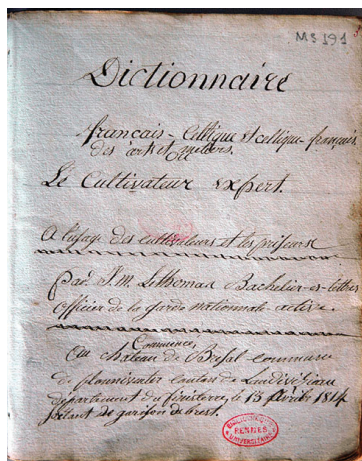 MS 191
Dictionnaire
français - Celtique et celtique français
des arts et métiers.
Le Cultivateur expert.
A l'usage des cultivateurs et les priseurs
par J. M. Lethomas Bachelier-es-lettres
Officier de la garde nationale active.
Commencé
Au château de commune
de plounéventer canton de Landivisiau
département du finisterre, le 15 février 1814
étant de garnison de brest.
BIBLIOTHEQUE
RENNES
UNIVERSITAIRE